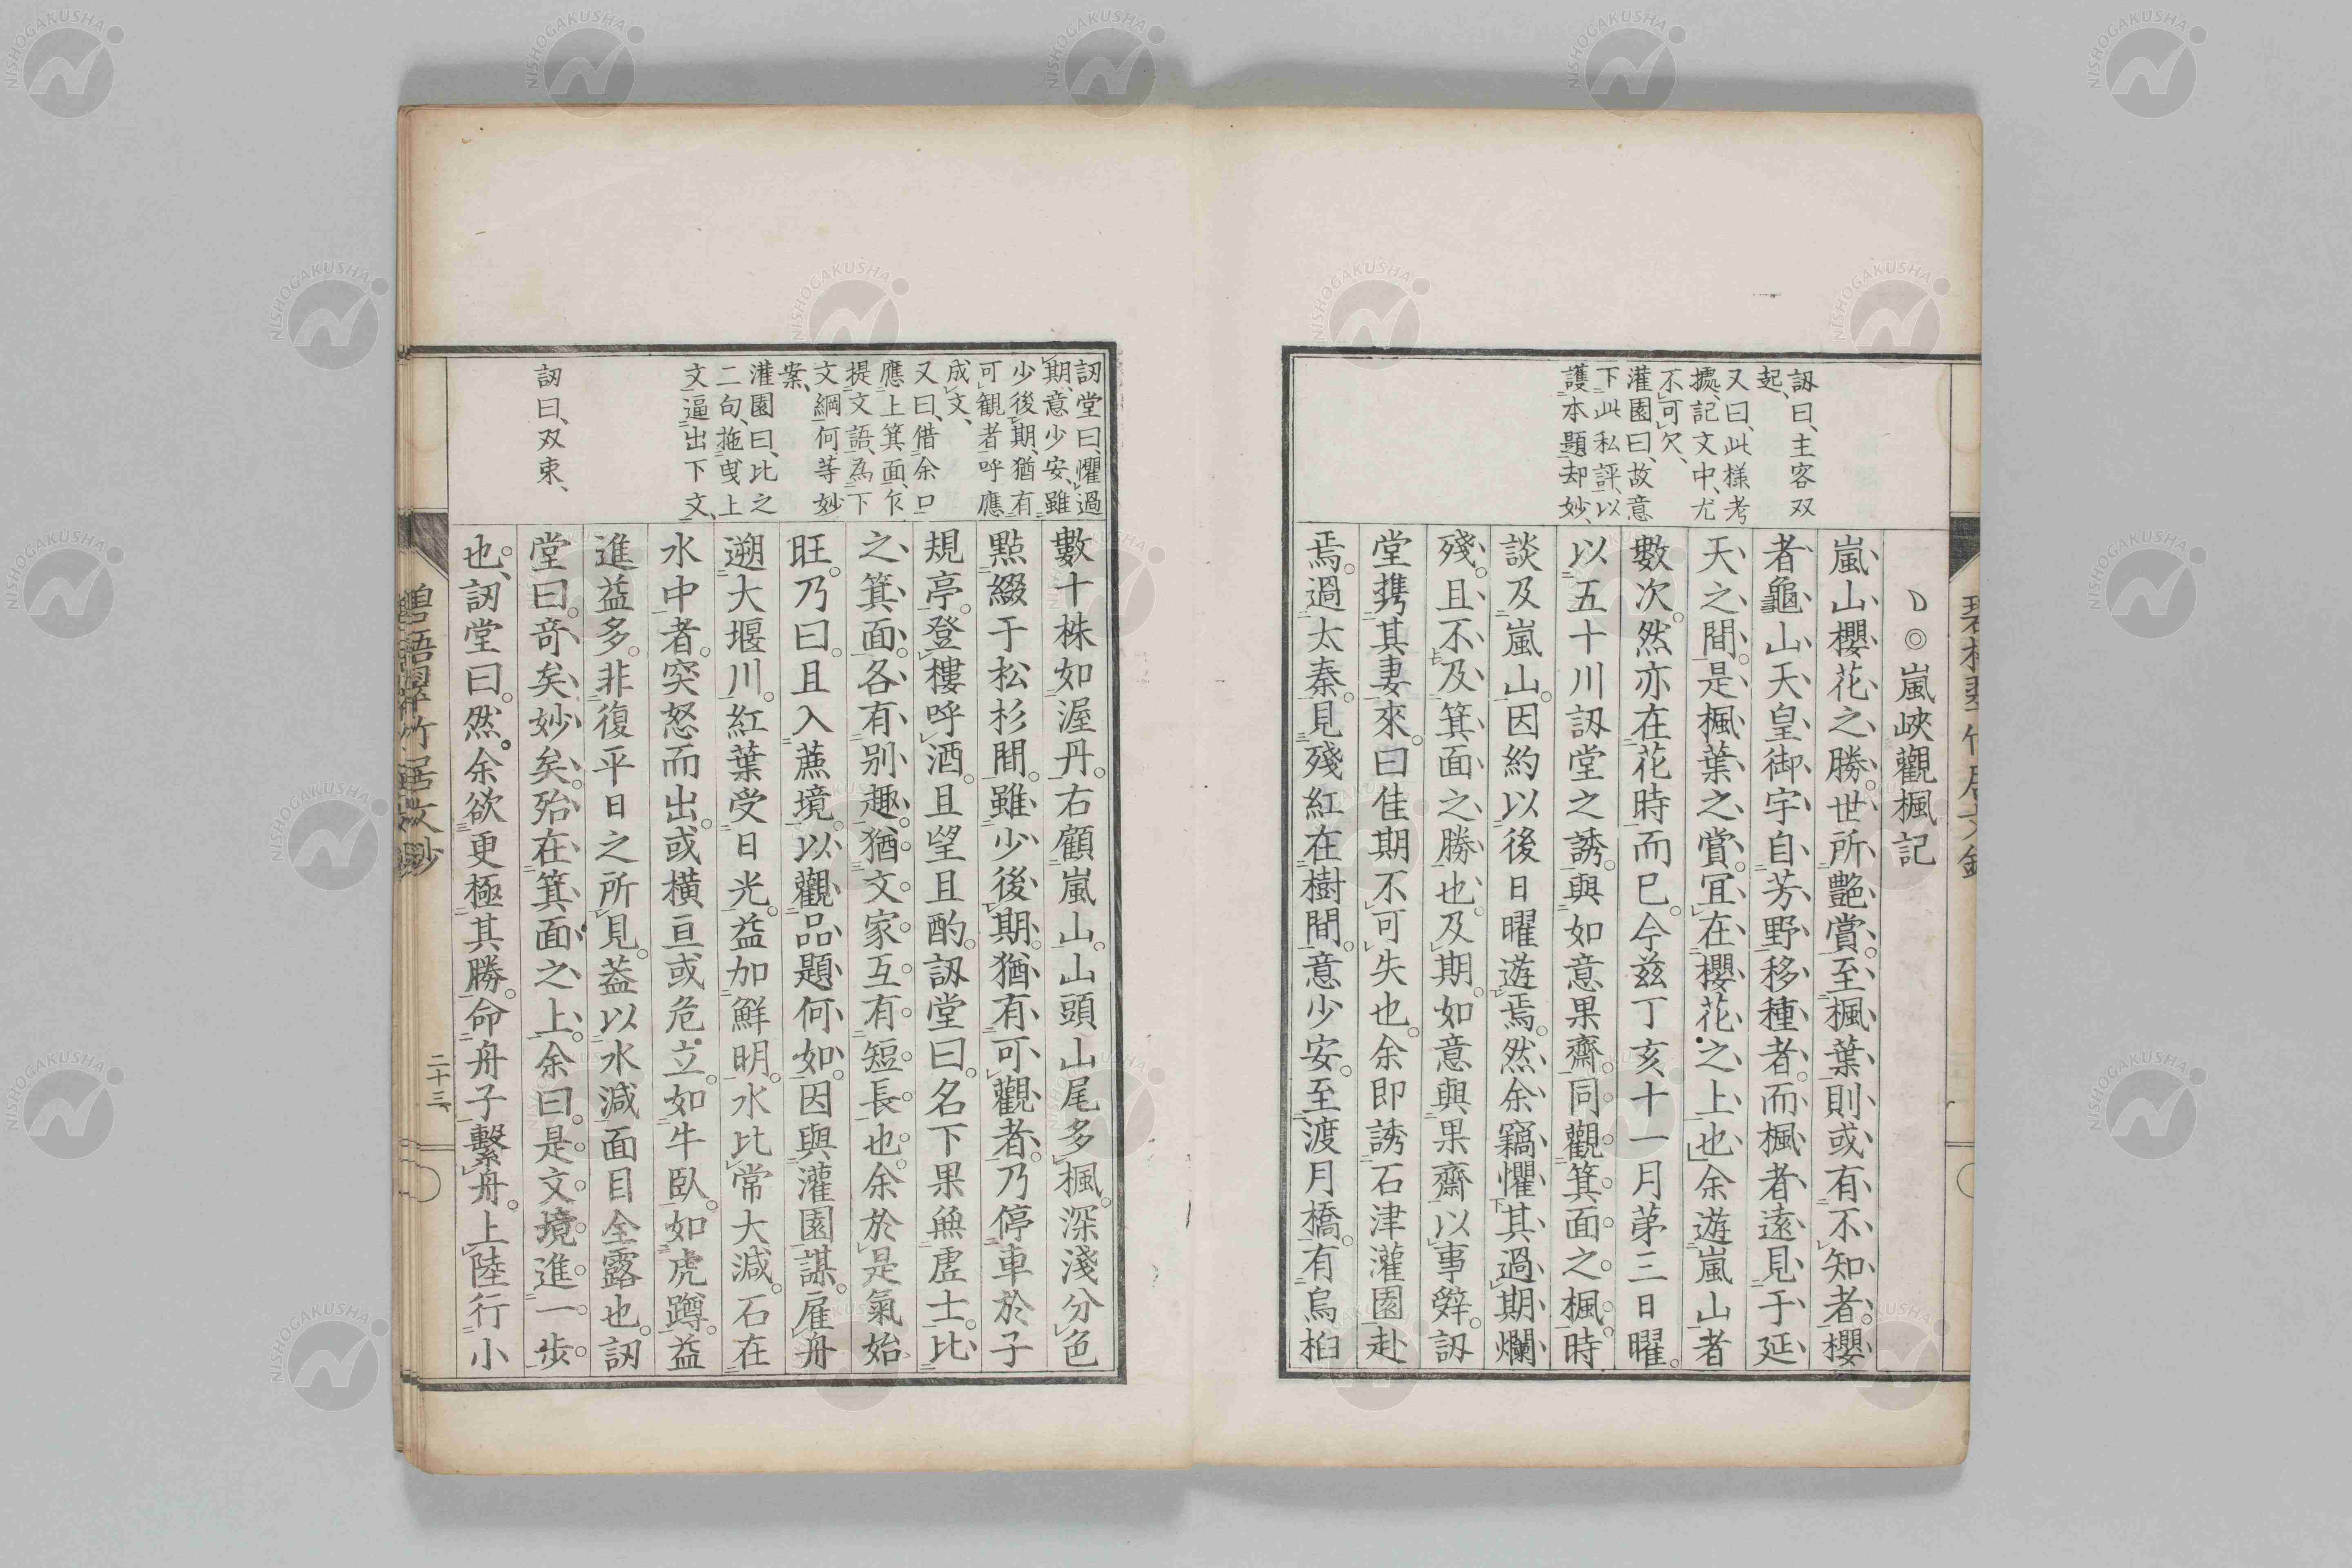 嵐峽觀楓記
嵐山櫻花之勝世所艷賞至楓葉則或有不知者櫻
者龜山天皇御宇自芳野移種者而楓者遠見于延
天之間是楓葉之賞宜在櫻花之上也余遊嵐山者
數次然亦在花時而已今茲丁亥十一月苐三日曜
以五十川訒堂之誘與如意果齋同觀箕面之楓時
談及嵐山因約以後日曜遊焉然余竊懼其過期爛
殘且不及箕面之勝也及期如意與果齋以事辤訒
堂携其妻來曰佳期不可失也余即誘石津灌園赴
焉過太秦見殘紅在樹間意少安至渡月橋有烏桕
訒曰、主客双
起、
又曰、此樣考
據、記文中、尤
不可欠、
灌園曰、故意
下此私評、以
護本題却妙、
數十株如渥丹右顧嵐山山頭山尾多楓深淺分色
點綴于松杉間雖少後期猶有可觀者乃停車於子
規亭登樓呼酒且望且酌訒堂曰名下果無虛士比
之箕面各有别趣猶文家互有短長也余於是氣始
旺乃曰且入蔗境以觀品題何如因與灌園謀雇舟
遡大堰川紅葉受日光益加鮮明水比常大減石在
水中者突怒而出或橫亘或危立如牛臥如虎蹲益
進益多非復平日之所見葢以水減面目全露也訒
堂曰竒矣妙矣殆在箕面之上余曰是文境進一步
也訒堂曰然余欲更極其勝命舟子繫舟上陸行小
訒堂曰、懼過
期、意少安、雖
少後期、猶有
可観者呼應
成文、
又曰、借余口
應上箕面、乍
提文語、為下
文綱何等妙
案、
灌園曰、比之
二句、拖曳上
文逼出下文、
訒曰、双束、
竹居文鈔
二十三